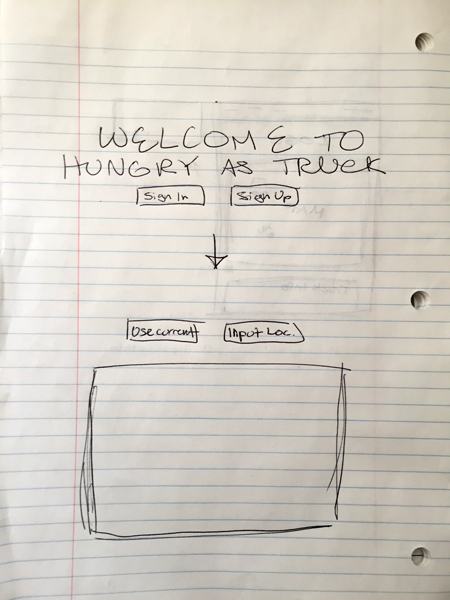 WELCOME TO
HUNGRY AS TRUCK
Sign In Sign Up
Use current Input Loc.